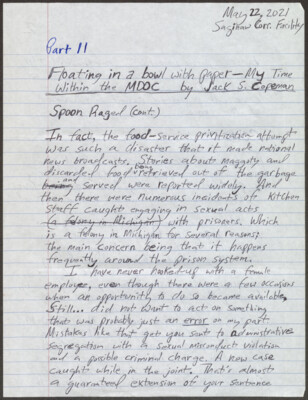 May 22, 2021
Saginaw Corr. Facility
Part 11
Floating in a bowl with paper — My Time
Within the MDOC by Jack S. Copeman
Spoon Raged (cont.)
In fact, the food-service privitization attempt
was such a disaster that it made national
news broadcasts. Stories about maggots and
discarded food being retrieved out of the garbage
and served were reported widely. And
then there were numerous incidents of kitchen
staff caught engaging in sexual acts
felony in Michigan) with prisoners, which
is a felony in Michigan for several reasons;
The main concern being that it happens
frequently around the prison system.
I have never hooked-up with a female
employee, even though there were a few occasions
when an opportunity to do so became available,
Still... did not want to act on something
that was probably just an error on my part.
Mistakes like that get you sent to administrative
segregation with a sexual misconduct violation
and a possible criminal charge. A new case
caught while in the joint. That's almost
a guaranteed extension of your sentence